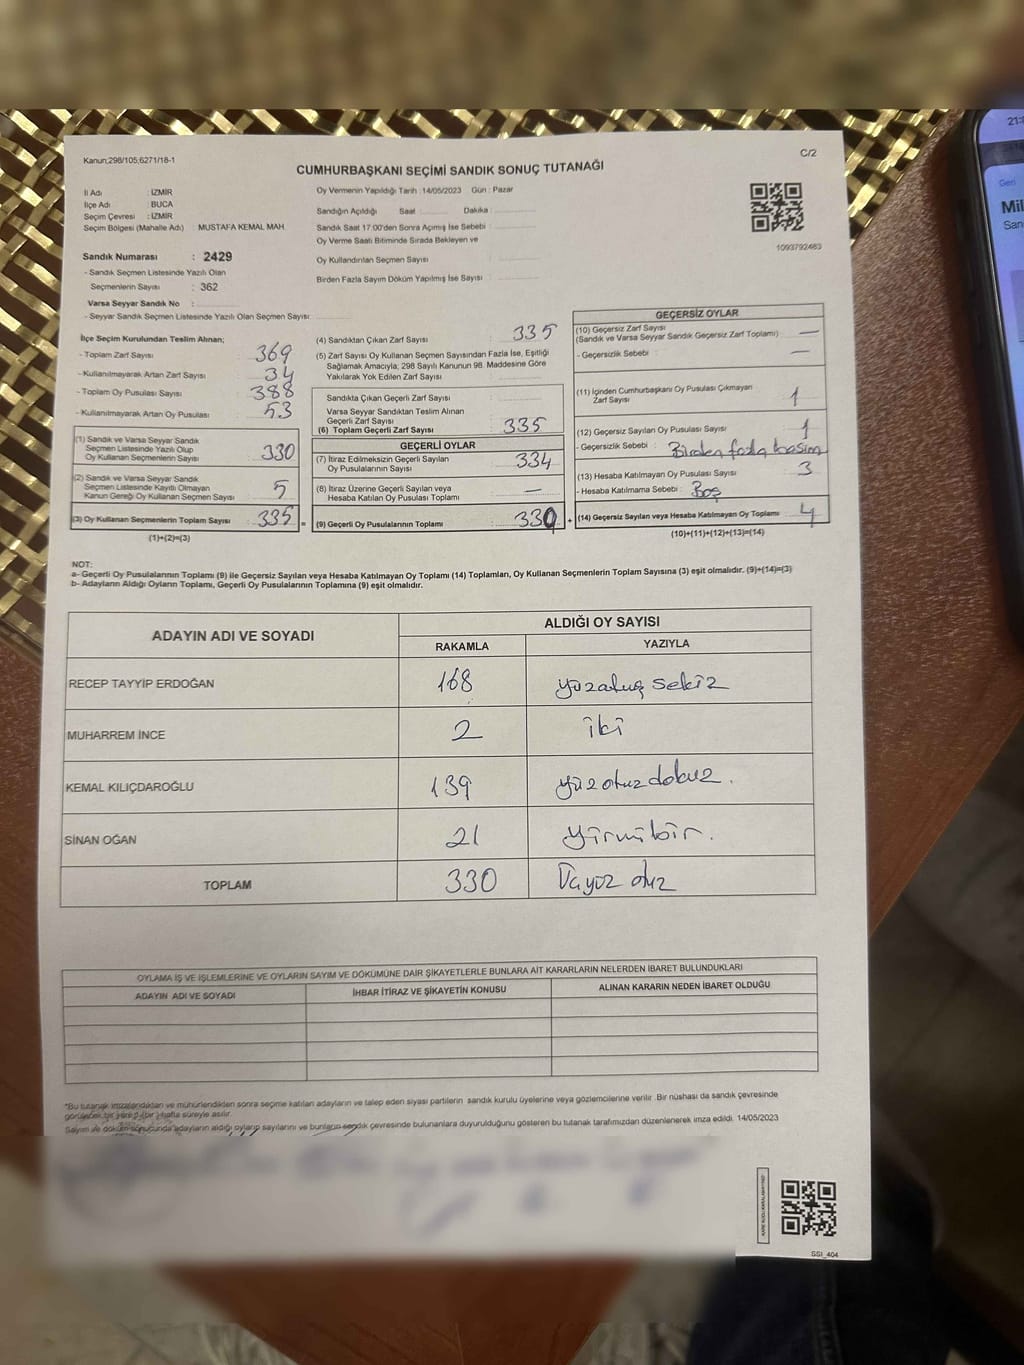 Kanun;298/105;6271/18-1
C/2
CUMHURBAŞKANI SEÇİMİ SANDIK SONUÇ TUTANAĞI
İl Adı : İZMİR
İlçe Adı : BUCA
Seçim Çevresi : İZMİR
Seçim Bölgesi (Mahalle Adı) MUSTAFA KEMAL MAH.
Sandık Numarası : 2429
- Sandık Seçmen Listesinde Yazılı Olan
Seçmenlerin Sayısı : 362
Varsa Seyyar Sandık No :
- Seyyar Sandık Seçmen Listesinde Yazılı Olan Seçmen Sayısı:
Oy Vermenin Yapıldığı Tarih :14/05/2023 Gün : Pazar
Sandığın Açıldığı Saat Dakika :
Sandık Saat 17:00'den Sonra Açımış İse Sebebi :
Oy Verme Saati Bitiminde Sırada Bekleyen ve
Oy Kullandırılan Seçmen Sayısı :
Birden Fazla Sayım Döküm Yapılmış İse Sayısı :
1093792463
İlçe Seçim Kurulundan Teslim Alınan;
- Toplam Zarf Sayısı : 369
- Kullanılmayarak Artan Zarf Sayısı : 34
- Toplam Oy Pusulası Sayısı : 388
- Kullanılmayarak Artan Oy Pusulası : 53
(1) Sandık ve Varsa Seyyar Sandık
Seçmen Listesinde Yazılı Olup
Oy Kullanan Seçmenlerin Sayısı : 330
(2) Sandık ve Varsa Seyyar Sandık
Seçmen Listesinde Kayıtlı Olmayan
Kanun Gereği Oy Kullanan Seçmen Sayısı : 5
(3) Oy Kullanan Seçmenlerin Toplam Sayısı : 335 =
(1)+(2)=(3)
(4) Sandıktan Çıkan Zarf Sayısı : 335
(5) Zarf Sayısı Oy Kullanan Seçmen Sayısından Fazla İse, Eşitliği
Sağlamak Amacıyla, 298 Sayılı Kanunun 98. Maddesine Göre
Yakılarak Yok Edilen Zarf Sayısı :
Sandıkta Çıkan Geçerli Zarf Sayısı :
Varsa Seyyar Sandıktan Teslim Alınan
Geçerli Zarf Sayısı :
(6) Toplam Geçerli Zarf Sayısı : 335
GEÇERLİ OYLAR
(7) İtiraz Edilmeksizin Geçerli Sayılan
Oy Pusulasının Sayısı : 334
(8) İtiraz Üzerine Geçerli Sayılan veya
Hesaba Katılan Oy Pusulası Toplamı : —
(9) Geçerli Oy Pusulalarının Toplamı : 330 +
GEÇERSİZ OYLAR
(10) Geçersiz Zarf Sayısı
(Sandık ve Varsa Seyyar Sandık Geçersiz Zarf Toplamı) : —
- Geçersizlik Sebebi : —
(11) İçinden Cumhurbaşkanı Oy Pusulası Çıkmayan
Zarf Sayısı : 1
(12) Geçersiz Sayılan Oy Pusulası Sayısı : 1
- Geçersizlik Sebebi : Birden fazla basım
(13) Hesaba Katılmayan Oy Pusulası Sayısı : 3
- Hesaba Katılmama Sebebi : Boş
(14) Geçersiz Sayılan veya Hesaba Katılmayan Oy Toplamı : 4
(10)+(11)+(12)+(13)=(14)
NOT:
a- Geçerli Oy Pusulalarının Toplamı (9) ile Geçersiz Sayılan veya Hesaba Katılmayan Oy Toplamı (14) Toplamları, Oy Kullanan Seçmenlerin Toplam Sayısına (3) eşit olmalıdır. (9)+(14)=(3)
b- Adayların Aldığı Oyların Toplamı, Geçerli Oy Pusulalarının Toplamına (9) eşit olmalıdır.
ADAYIN ADI VE SOYADI ALDIĞI OY SAYISI
RAKAMLA YAZIYLA
RECEP TAYYİP ERDOĞAN 168 yüzatmış sekiz
MUHARREM İNCE 2 iki
KEMAL KILIÇDAROĞLU 139 yüzotuzdokuz.
SİNAN OĞAN 21 yirmibir.
TOPLAM 330 Üçyüz otuz
OYLAMA İŞ VE İŞLEMLERİNE VE OYLARIN SAYIM VE DÖKÜMÜNE DAİR ŞİKAYETLERLE BUNLARA AİT KARARLARIN NELERDEN İBARET BULUNDUKLARI
ADAYIN ADI VE SOYADI İHBAR İTİRAZ VE ŞİKAYETİN KONUSU ALINAN KARARIN NEDEN İBARET OLDUĞU
*Bu tutanak imzalandıktan ve mühürlendikten sonra seçime katılan adayların ve talep eden siyasi partilerin sandık kurulu üyelerine veya gözlemcilerine verilir. Bir nüshası da sandık çevresinde
görülecek bir yere 1 (bir) hafta süreyle asılır.
Sayım ve döküm sonucunda adayların aldığı oyların sayılarını ve bunların sandık çevresinde bulunanlara duyurulduğunu gösteren bu tutanak tarafımızdan düzenlenerek imza edildi. 14/05/2023
SSI_404
Geri